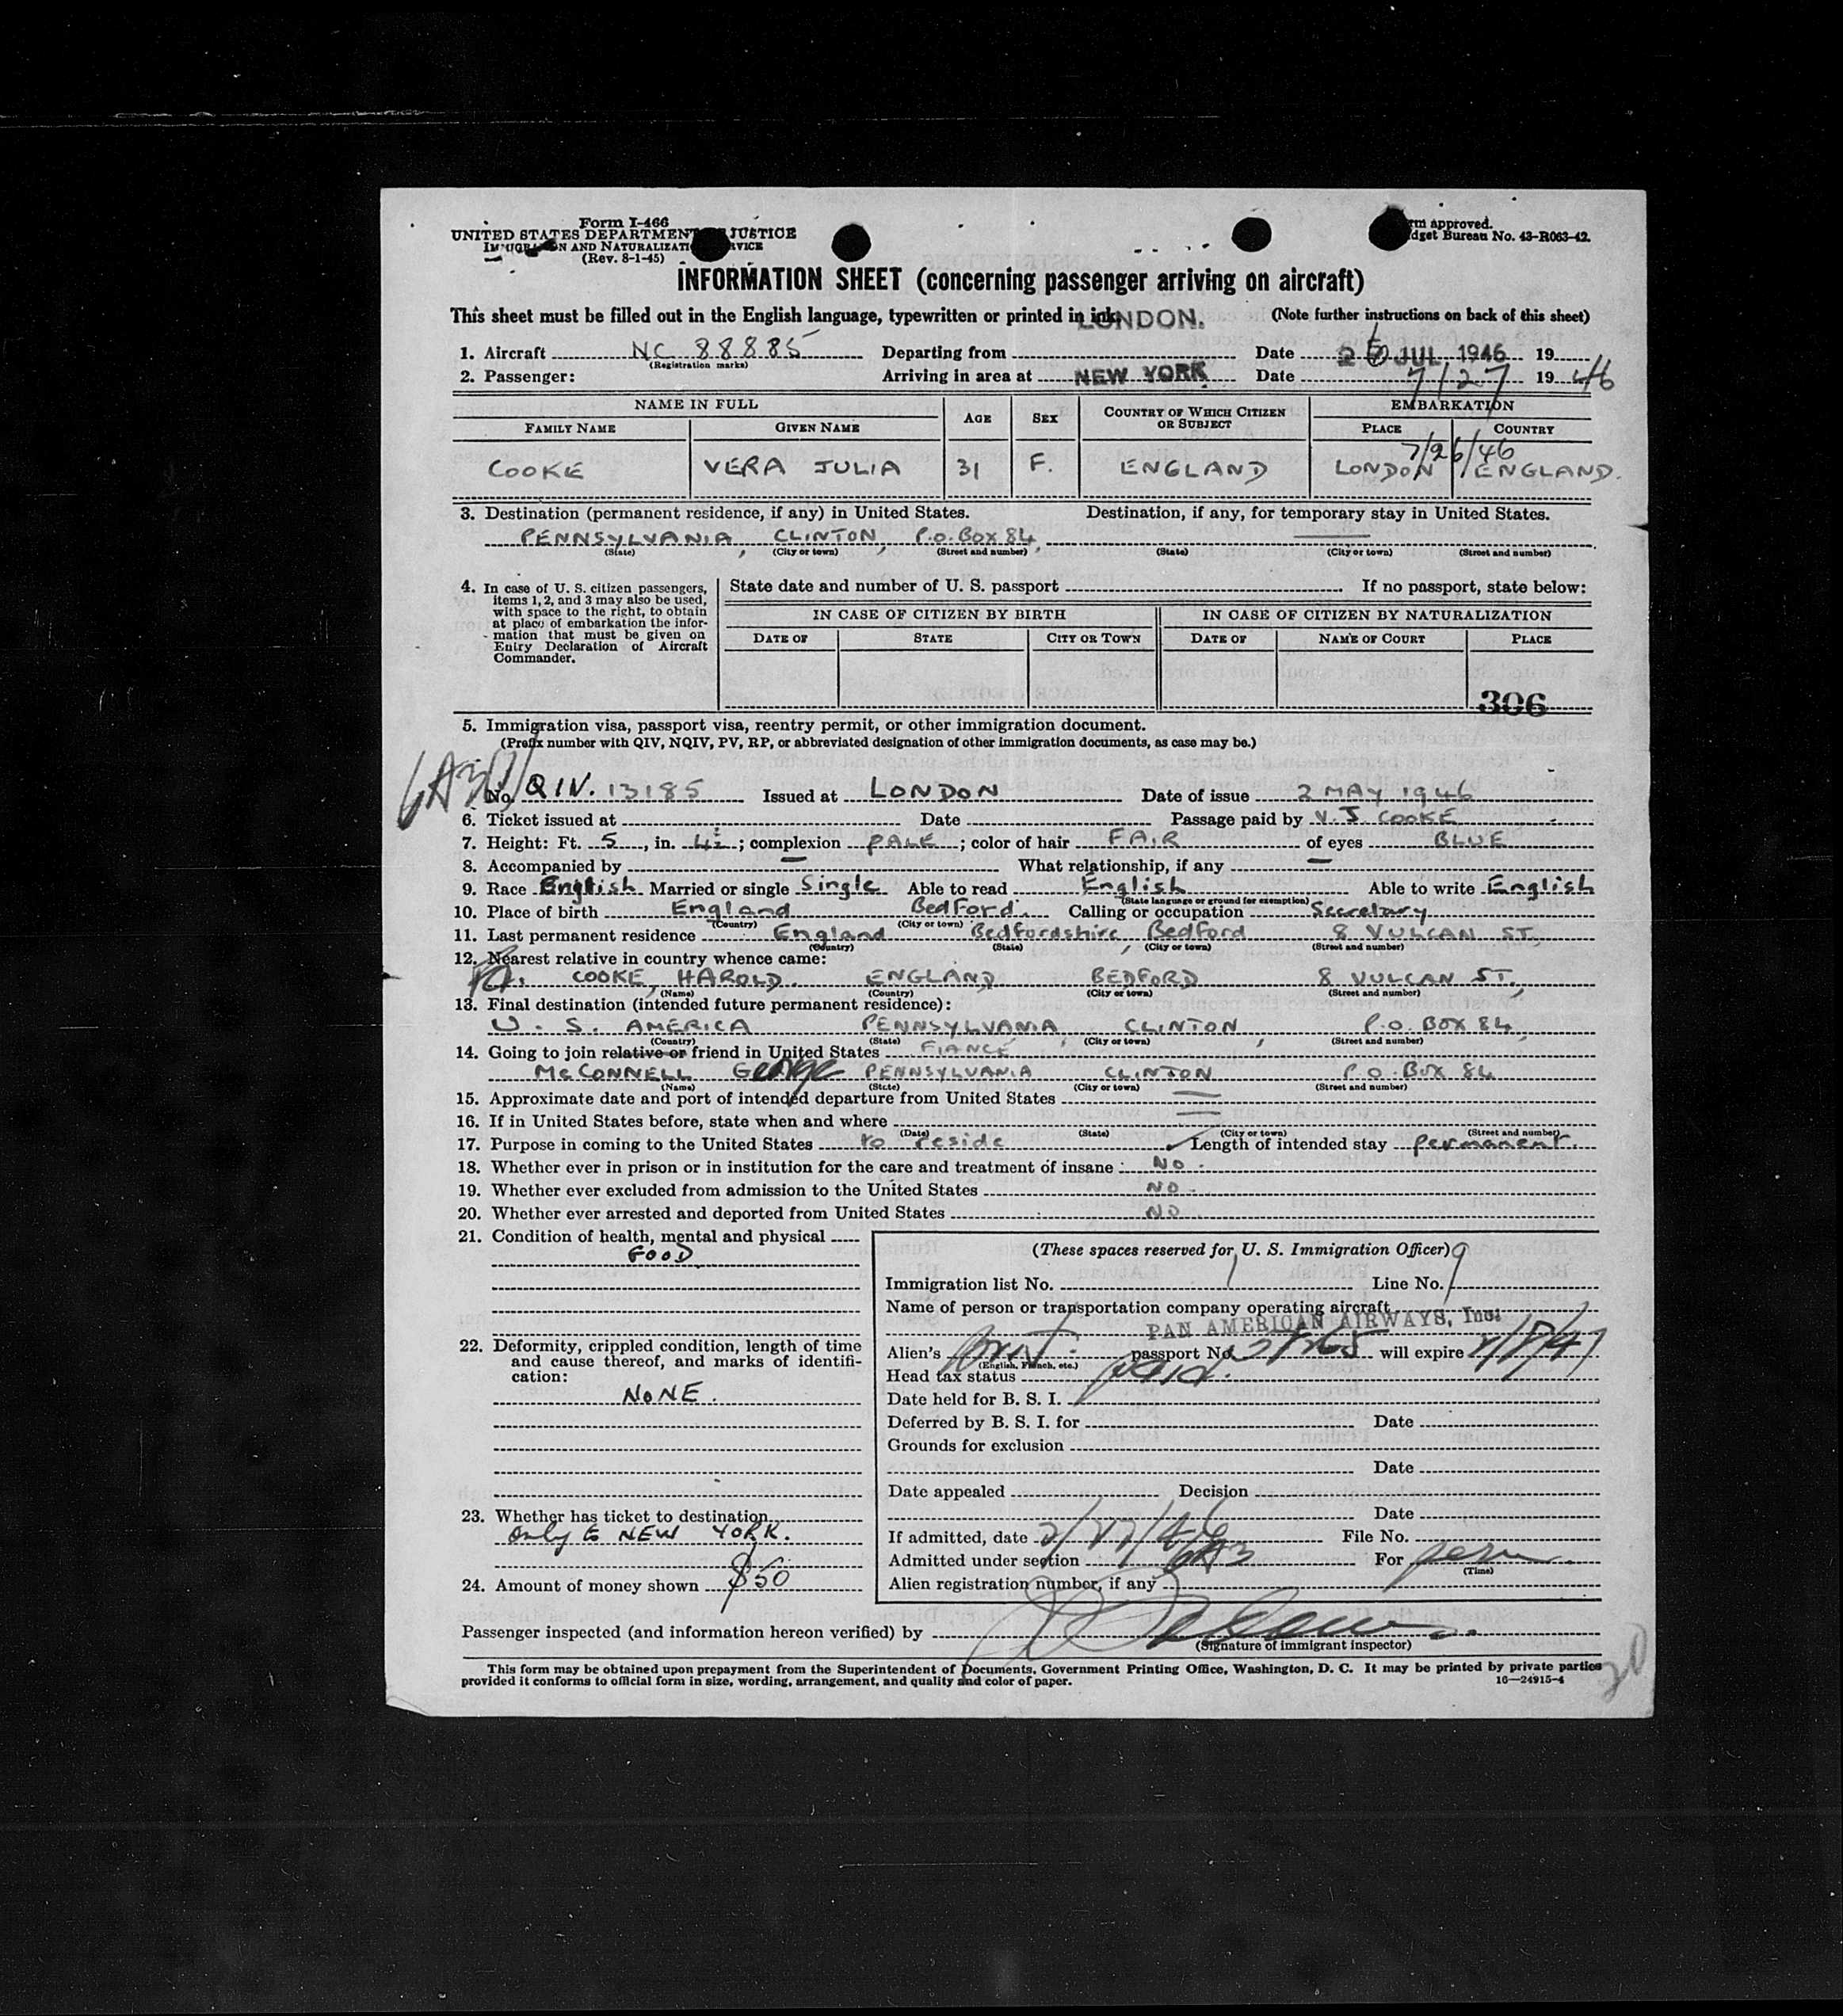 Form I-466
UNITED STATES DEPARTMENT JUSTICE
IMMIGRATION AND NATURALIZATI RVICE
(Rev. 8-1-45)
rm approved.
dget Bureau No. 43-R063-42.
INFORMATION SHEET (concerning passenger arriving on aircraft)
This sheet must be filled out in the English language, typewritten or printed in ink. (Note further instructions on back of this sheet)
LONDON.
1. Aircraft NC 88885 Departing from Date 26 JUL 1946 19
(Registration marks)
2. Passenger: Arriving in area at NEW YORK Date 7/27 1946
NAME IN FULL AGE SEX COUNTRY OF WHICH CITIZEN OR SUBJECT EMBARKATION
FAMILY NAME GIVEN NAME PLACE COUNTRY
7/26/46
COOKE VERA JULIA 31 F. ENGLAND LONDON ENGLAND.
3. Destination (permanent residence, if any) in United States. Destination, if any, for temporary stay in United States.
PENNSYLVANIA, CLINTON, P.O. BOX 84,
(State) (City or town) (Street and number) (State) (City or town) (Street and number)
4. In case of U. S. citizen passengers, items 1, 2, and 3 may also be used, with space to the right, to obtain at place of embarkation the information that must be given on Entry Declaration of Aircraft Commander.
State date and number of U. S. passport If no passport, state below:
IN CASE OF CITIZEN BY BIRTH IN CASE OF CITIZEN BY NATURALIZATION
DATE OF STATE CITY OR TOWN DATE OF NAME OF COURT PLACE
306
5. Immigration visa, passport visa, reentry permit, or other immigration document.
(Prefix number with QIV, NQIV, PV, RP, or abbreviated designation of other immigration documents, as case may be.)
No. QIV. 13185 Issued at LONDON Date of issue 2 MAY 1946
6. Ticket issued at Date Passage paid by V. J. COOKE
7. Height: Ft. 5, in. 4½; complexion PALE; color of hair FAIR of eyes BLUE
8. Accompanied by — What relationship, if any —
9. Race English Married or single Single Able to read English Able to write English
(State language or ground for exemption)
10. Place of birth England Bedford. Calling or occupation Secretary
(Country) (City or town)
11. Last permanent residence England Bedfordshire, Bedford 8 VULCAN ST.,
(Country) (State) (City or town) (Street and number)
12. Nearest relative in country whence came:
COOKE, HAROLD. ENGLAND BEDFORD 8 VULCAN ST.,
(Name) (Country) (City or town) (Street and number)
13. Final destination (intended future permanent residence):
U. S. AMERICA PENNSYLVANIA, CLINTON, P.O. BOX 84,
(Country) (State) (City or town) (Street and number)
14. Going to join relative or friend in United States FIANCE
McCONNELL George PENNSYLVANIA CLINTON P.O. BOX 84
(Name) (State) (City or town) (Street and number)
15. Approximate date and port of intended departure from United States
16. If in United States before, state when and where
(Date) (State) (City or town) (Street and number)
17. Purpose in coming to the United States to reside Length of intended stay permanent.
18. Whether ever in prison or in institution for the care and treatment of insane: NO.
19. Whether ever excluded from admission to the United States NO.
20. Whether ever arrested and deported from United States NO.
21. Condition of health, mental and physical
GOOD
22. Deformity, crippled condition, length of time and cause thereof, and marks of identification:
NONE.
23. Whether has ticket to destination
only to NEW YORK.
24. Amount of money shown $50
(These spaces reserved for U. S. Immigration Officer)
Immigration list No. 1 Line No. 9
Name of person or transportation company operating aircraft
PAN AMERICAN AIRWAYS, Inc.
Alien's passport No. will expire
(English, French, etc.)
Head tax status paid.
Date held for B. S. I.
Deferred by B. S. I. for Date
Grounds for exclusion
Date
Date appealed Decision
Date
If admitted, date 7/27/46 File No.
Admitted under section 6A3 For perm.
(Time)
Alien registration number, if any
Passenger inspected (and information hereon verified) by
(Signature of immigrant inspector)
This form may be obtained upon prepayment from the Superintendent of Documents, Government Printing Office, Washington, D. C. It may be printed by private parties
provided it conforms to official form in size, wording, arrangement, and quality and color of paper. 16—24915-4